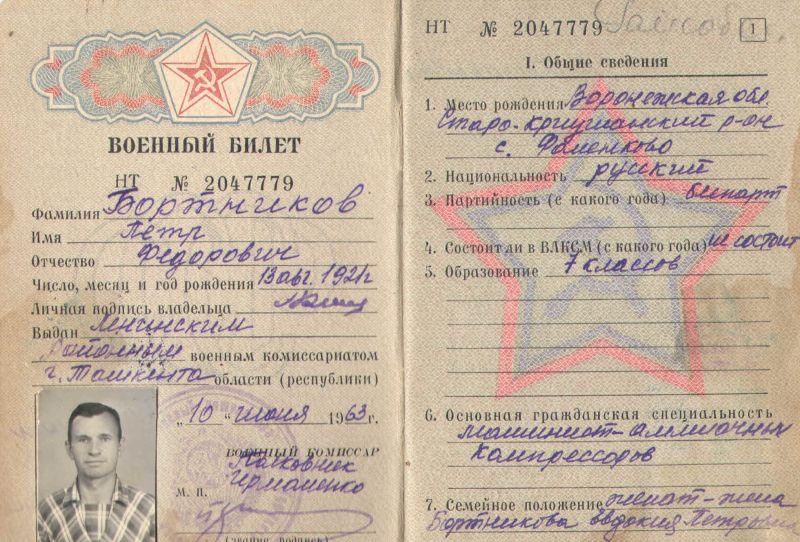 ВОЕННЫЙ БИЛЕТ
НТ № 2047779
Фамилия Бортников
Имя Петр
Отчество Федорович
Число, месяц и год рождения 13 авг. 1921г
Личная подпись владельца
Выдан Ленинским
районным военным комиссариатом
г. Ташкента области (республики)
„10“ июня 1963г.
ВОЕННЫЙ КОМИССАР
Полковник
М. П.
(звание, подпись)
НТ № 2047779 1
I. Общие сведения
1. Место рождения Воронежская обл.
Старо-криушанский р-он
с. Фоменково
2. Национальность русский
3. Партийность (с какого года) беспарт
4. Состоит ли в ВЛКСМ (с какого года) не состоит
5. Образование 7 классов
6. Основная гражданская специальность
машинист-аммиачных
компрессоров
7. Семейное положение женат-жена
Бортникова Евдокия Петровна